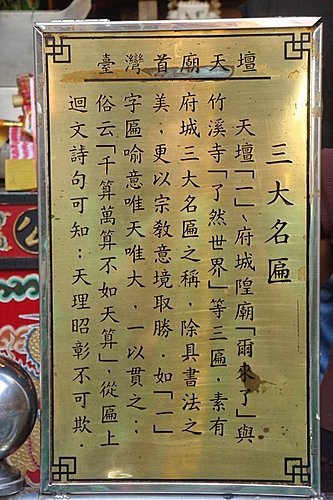 臺灣首廟天壇
三大名匾
天壇「一」、府城隍廟「爾來了」與
竹溪寺「了然世界」等三匾，素有
府城三大名匾之稱，除具書法之
美，更以宗教意境取勝．如「一」
字匾喻意唯天唯大，一以貫之；
俗云「千算萬算不如天算」，從匾上
迴文詩句可知：天理昭彰不可欺．